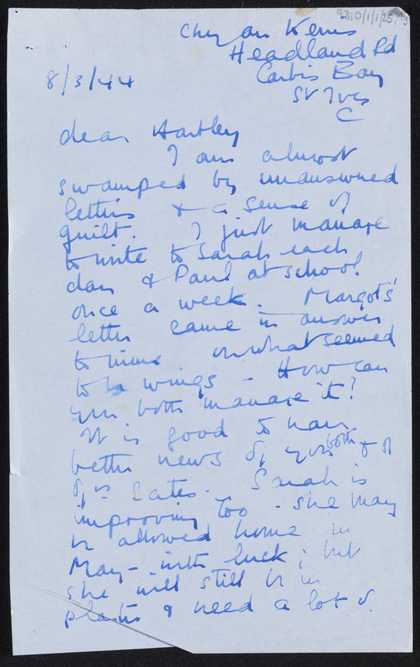 9210/1/1/25
Chy an Kerris
Headland Rd
Carbis Bay
St Ives
C
8/3/44
dear Hartley
I am almost
swamped by unanswered
letters & a sense of
guilt. I just manage
to write to Sarah each
day & Paul at school
once a week. Margot's
letter came in answer
to mine on what seemed
to be wings - How can
you both manage it?
It is good to have
better news of you both & of
Cates. Sarah is
improving too - she may
be allowed home in
May - with luck; but
she will still be in
plaster & need a lot of